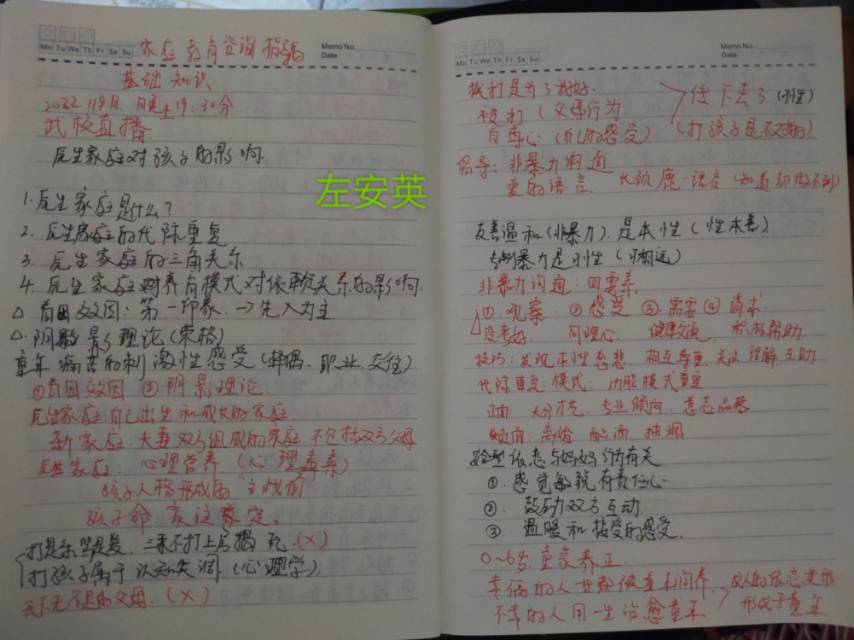 家庭教育咨询指导
Memo No.
Mo Tu We Th Fr Sa Su
Date
基础知识
2022 11月 晚上19:30分
武校直播
原生家庭对孩子的影响
左安英
1.原生家庭是什么?
2.原生家庭的代际重复
3.原生家庭的三角关系
4.原生家庭对养育模式对依赖关系的影响
△首因效因:第一印象→先入为主
△阴影理论(荣格)
童年痛苦的刺激性感受(择偶、职业、交往)
①首因效因 ②阴影理论
原生家庭:自己出生和成长的家庭
新家庭:夫妻双方组成的家庭不包括双方父母
原生家庭:心理营养(心理毒素)
孩子人格形成的"主战场"
孩子命 家运家定。
打是亲骂是爱、三天不打上房揭瓦(×)
打孩子属于认知失调(心理学)
天下无不是的父母(×)
Memo No.
Mo Tu We Th Fr Sa Su
Date
我打是为了你好
被打(父母行为
自尊心(自己的感受)
传下去了(习性)
(打孩子是不对的)
倡导:非暴力沟通
爱的语言 长颈鹿语言(知道却做不到)
友善温和(非暴力)是本性(性本善)
专制暴力是习性(习相远)
非暴力沟通:四要素
①观察 ②感受 ③需要 ④请求
同理心 健康交流 积极帮助
技巧:发现本性慈悲 相互尊重、关注 理解、互助
代际重复:模式:功能模式重复
正面 天分相先、专业倾向、意志品格
负面:离婚 酗酒、抽烟
依恋与妈妈行为有关
①.感觉敏锐有责任心
②.鼓励双方互动
③.温暖和接受的感受
0~6岁童蒙养正
幸福的人一生都被童年问养
不幸的人用一生治愈童年
成人的依恋类形
形成于童年